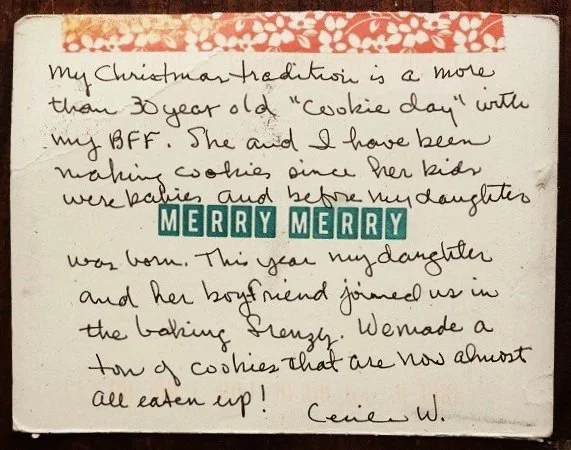 My Christmas tradition is a more
than 30 year old "cookie day" with
my BFF. She and I have been
making cookies since her kids
were babies and before my daughter
MERRY MERRY
was born. This year my daughter
and her boyfriend joined us in
the baking frenzy. We made a
ton of cookies that are now almost
all eaten up!
W.